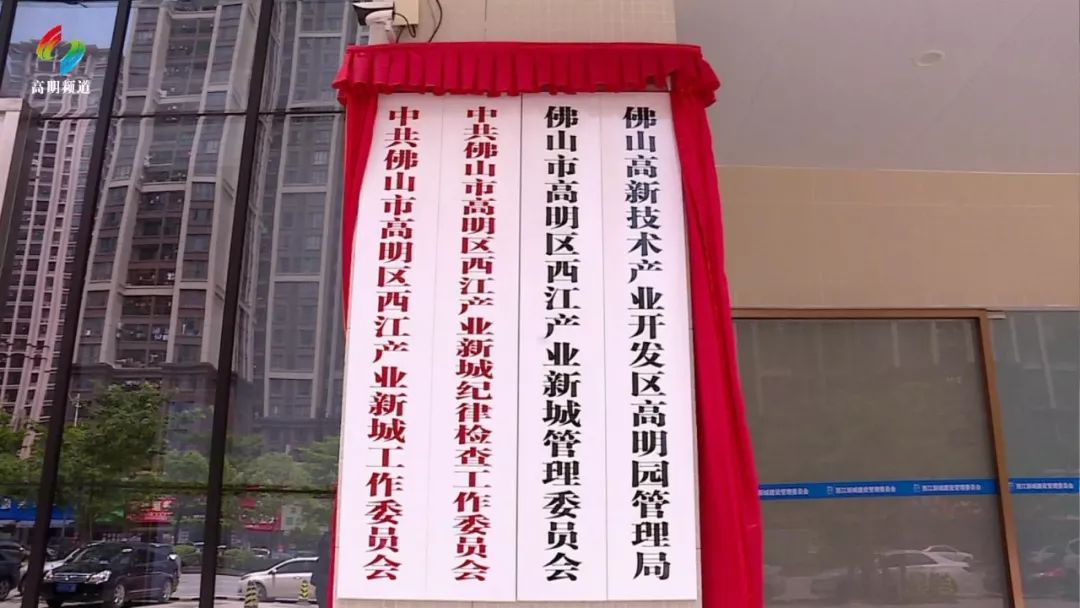 高明频道
佛山高新技术产业开发区高明园管理局
佛山市高明区西江产业新城管理委员会
中共佛山市高明区西江产业新城纪律检查工作委员会
中共佛山市高明区西江产业新城工作委员会
西江新城建设管理委员会